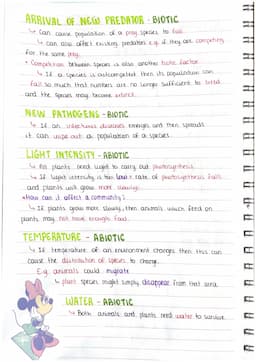 ARRIVAL OF NEW PREDATOR - BIOTIC
↳ Can cause population of a prey species to fall.
↳ can also affect existing predators e.g. if they are competing
for the same prey.
• Competition between species is also another biotic factor.
↳ If a species is outcompeted then its population can
fall so much that numbers are no longer sufficient to breed
and the species may become extinct.
NEW PATHOGENS - BIOTIC
↳ If an infectious disease emerges and then spreads
it can wipe out a population of a species.
LIGHT INTENSITY - ABIOTIC
↳ All plants need light to carry out photosynthesis.
↳ If light intensity is too low, rate of photosynthesis falls
and plants will grow more slowly.
• How can it affect a community?
↳ If plants grow more slowly, then animals which feed on
plants may not have enough food.
TEMPERATURE - ABIOTIC
↳ If temperature of an environment changes then this can
cause the distribution of species to change.
E.g. animals could migrate
↳ plant species might simply disappear from that area.
WATER - ABIOTIC
↳ Both animals and plants need water to survive.